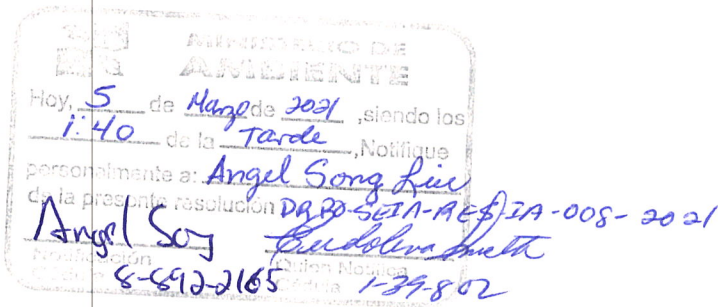 MINISTERIO DE
AMBIENTE
Hoy, 5 de Marzo de 2021, siendo las
1:40 de la Tarde, Notifique
personalmente a: Angel Song Liu
de la presente resolución DRPO-SEIA-RES-IA-008-2021
Angel Song
Notificación Quien Notifica
8-892-2165 Cédula 1-29-802